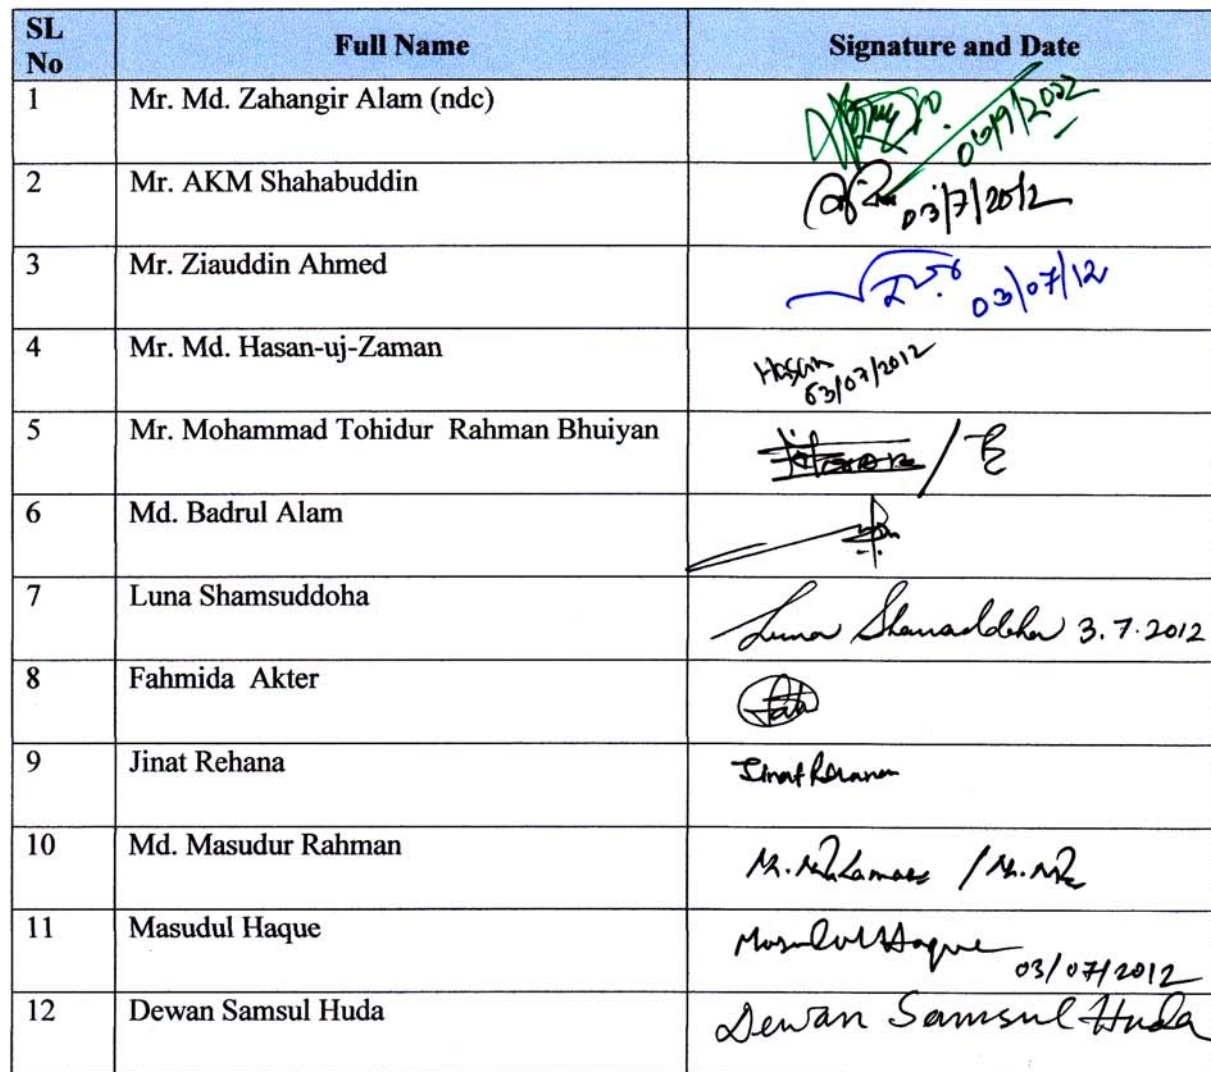 SL No Full Name Signature and Date
1 Mr. Md. Zahangir Alam (ndc)
2 Mr. AKM Shahabuddin 03/7/2012
3 Mr. Ziauddin Ahmed 03/07/12
4 Mr. Md. Hasan-uj-Zaman Hasan 03/07/2012
5 Mr. Mohammad Tohidur Rahman Bhuiyan
6 Md. Badrul Alam
7 Luna Shamsuddoha Luna Shamsuddoha 3.7.2012
8 Fahmida Akter
9 Jinat Rehana Jinat Rehana
10 Md. Masudur Rahman
11 Masudul Haque Masudul Haque 03/07/2012
12 Dewan Samsul Huda Dewan Samsul Huda